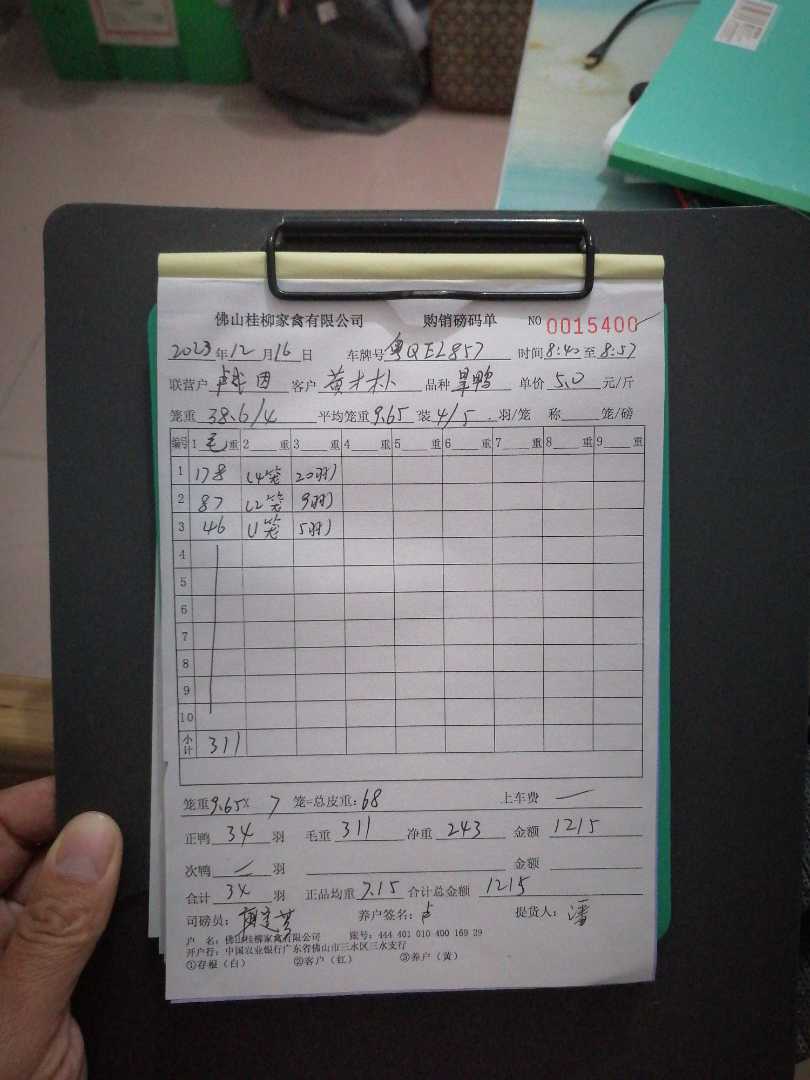 佛山桂柳家禽有限公司 购销磅码单 NO 0015400
2023年12月16日 车牌号 粤QEL857 时间8:40至8:57
联营户 客户 黄木朴 品种 旱鸭 单价 5.0 元/斤
笼重 38.6/4 平均笼重9.65 装4/5 羽/笼 称 笼/磅
编号 1毛重 2 重 3 重 4 重 5 重 6 重 7 重 8 重 9 重
1 178 (4笼 20羽)
2 87 (2笼 9羽)
3 46 (1笼 5羽)
4
5
6
7
8
9
10
小计 311
笼重9.65× 7 笼=总皮重:68 上车费 一
正鸭 34 羽 毛重 311 净重 243 金额 1215
次鸭 一 羽 金额
合计 34 羽 正品均重 7.15 合计总金额 1215
司磅员: 养户签名:卢 提货人:潘
户 名:佛山桂柳家禽有限公司 账号:444 401 010 400 169 29
开户行:中国农业银行广东省佛山市三水区三水支行
①存根(白) ②客户(红) ③养户(黄)